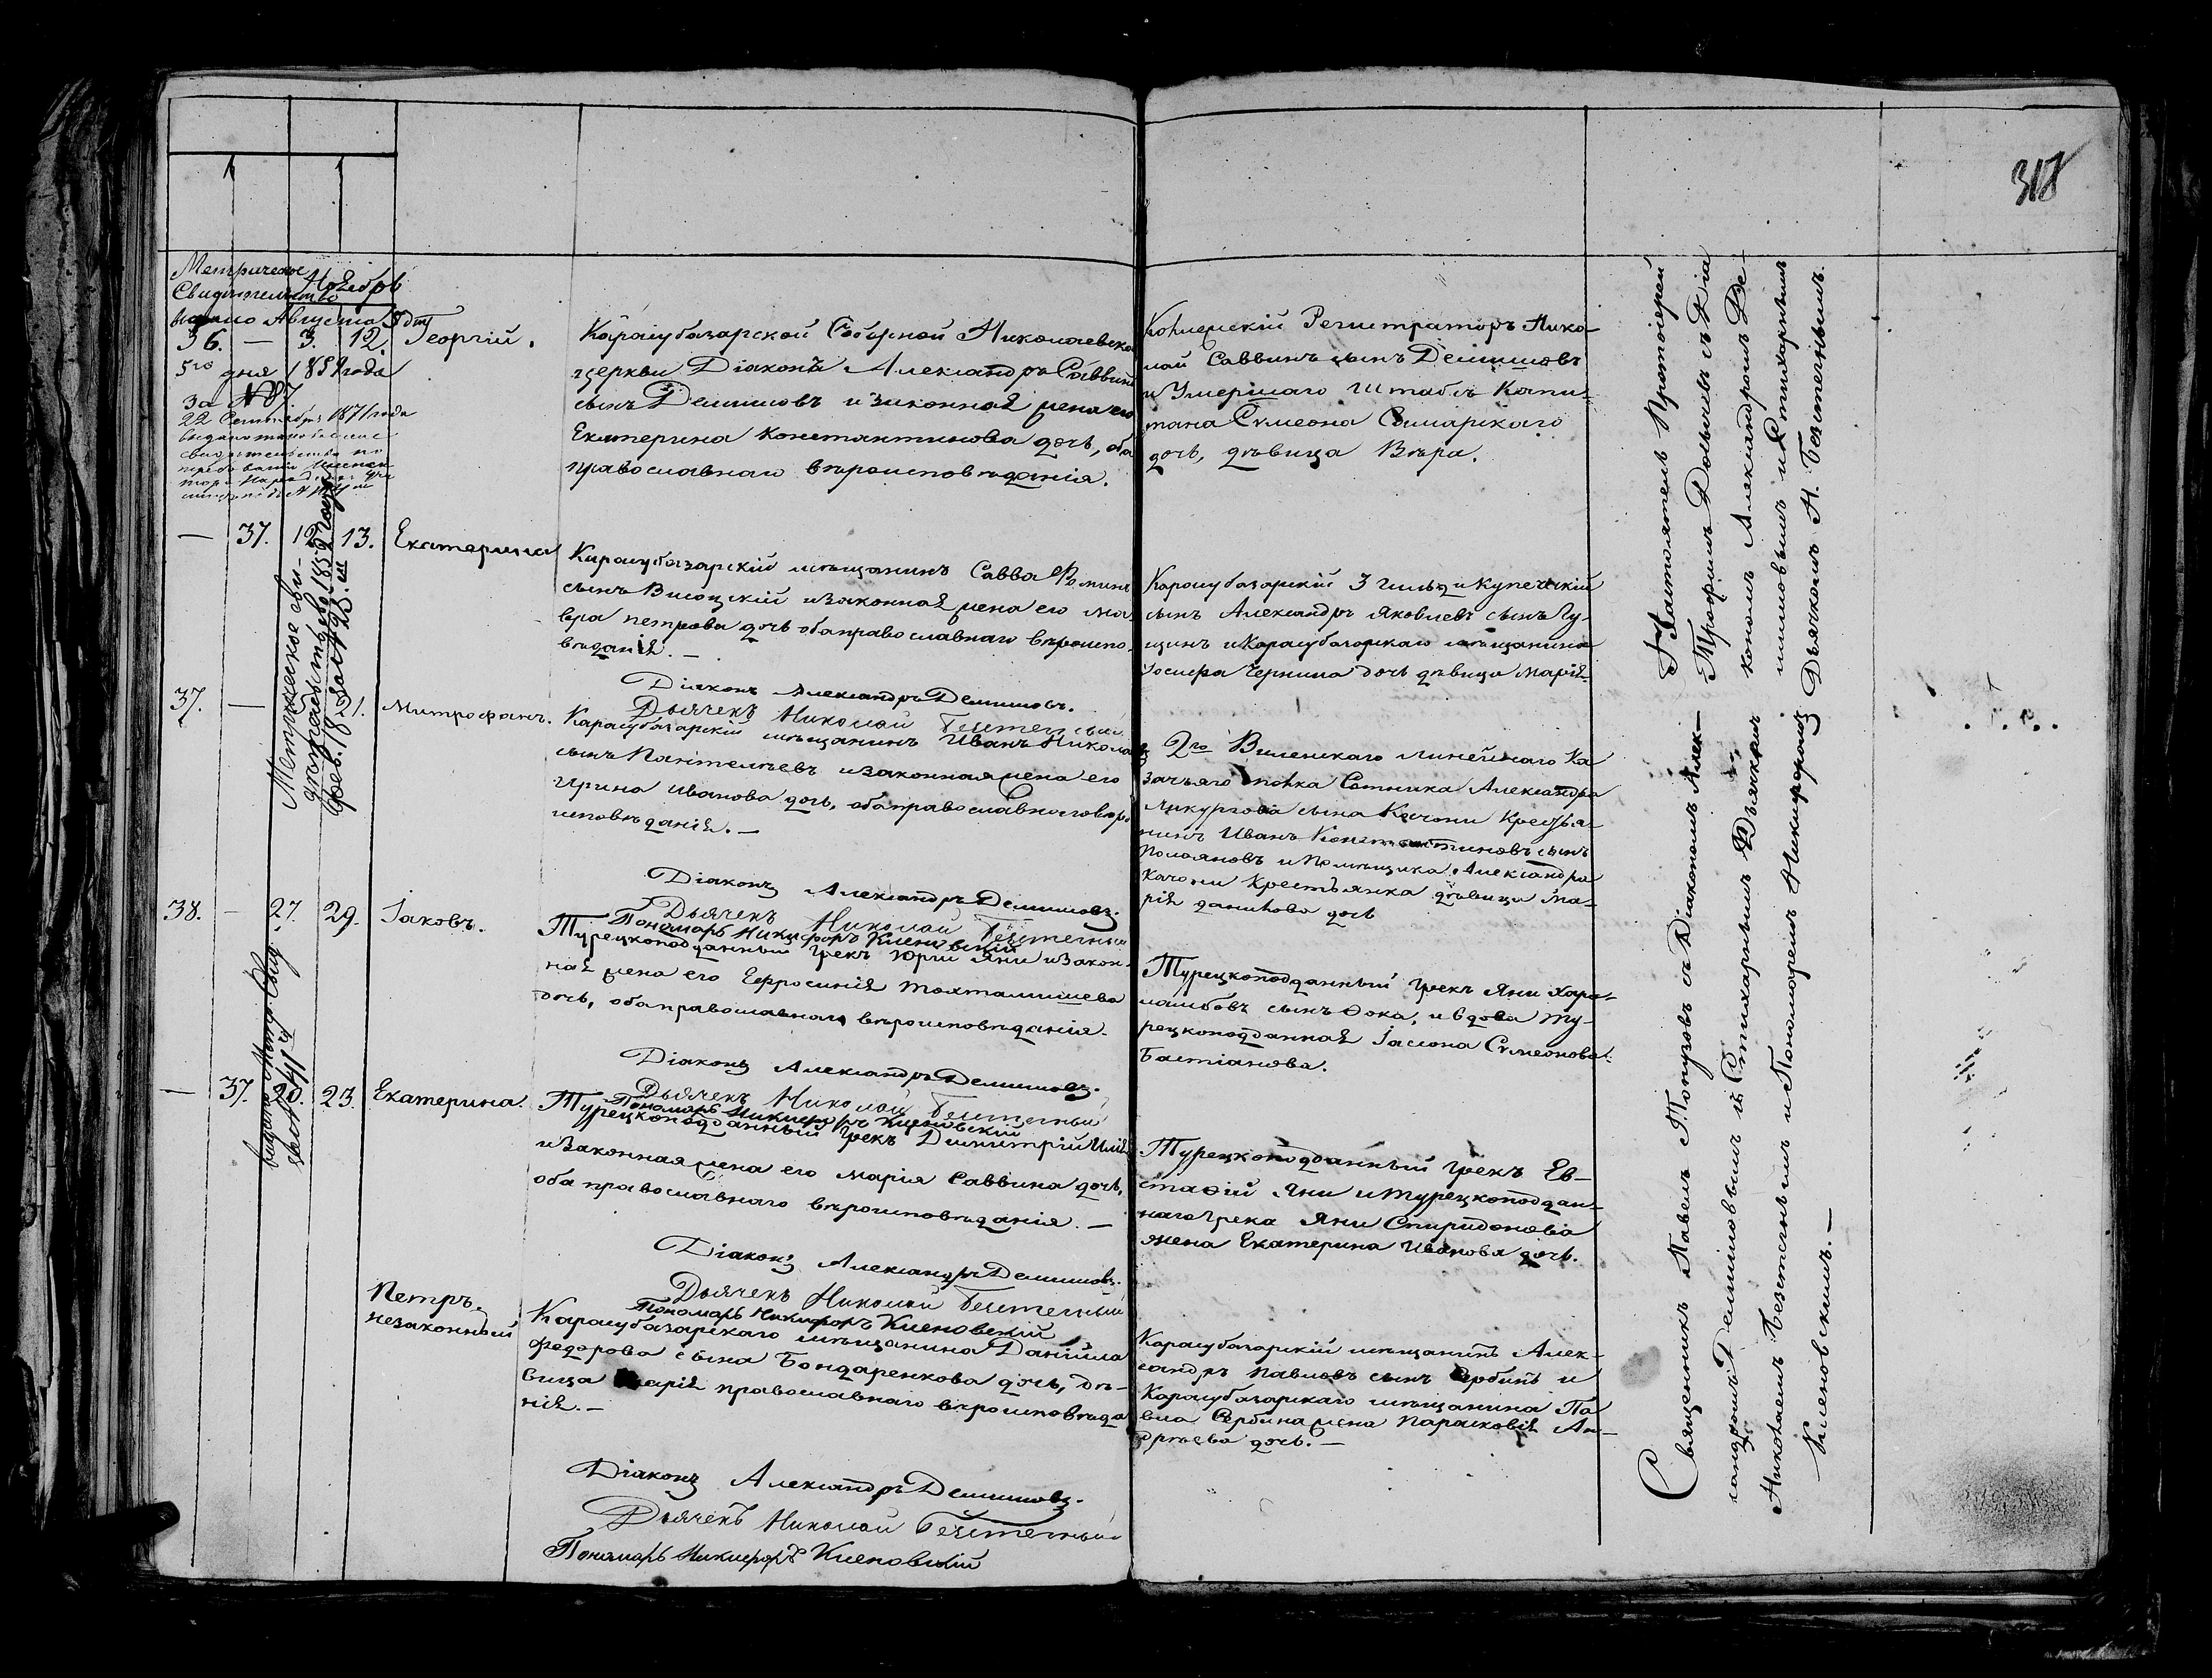 318
Метрическое
Свидетельство
Ноябрь
Августа
36. — 3. 12. Георгій.
5го дня 1859 года
За № 87
22 Сентября 1871 года
Карасубазарской Соборной Николаевской
церкви Діаконъ Александръ Саввинъ
сынъ Демишовъ и законная жена его
Екатерина Константинова дочь, оба
православнаго вѣроисповѣданія.
Коллежскій Регистраторъ Нико-
лай Саввинъ сынъ Демишовъ
и Умершаго Штабсъ Капи-
тана Сѵмеона дочь, дѣвица Вѣра.
— 37. 12. 13. Екатерина
Метрическое сви-
дѣтельство
Карасубазарскій мѣщанинъ Савва Ѳоминъ
сынъ Висоцкій и законная жена его Ма-
вра Петрова дочь оба православнаго вѣроиспо-
вѣданія. —
Карасубазарскій 3 гильд и Купеческій
сынъ Александръ Яковлевъ сынъ Гу-
щинъ и Карасубазарскаго мѣщанина
Іосифа Чернина дочь дѣвица Марія.
Діаконъ Александръ Демишовъ.
Дьячекъ Николай
37. — 21. Митрофанъ.
Карасубазарскій мѣщанинъ Иванъ Николаевъ
сынъ Пантелѣевъ и законная жена его
Ирина Иванова дочь, оба православнаго вѣро
исповѣданія. —
2го линейнаго Ка
зачьяго полка Сотника Александра
Ликургова сына Качони Крестья-
нинъ Иванъ Константиновъ сынъ
и Помѣщика Александра
Качони Крестьянка дѣвица Ма-
рія Данилова дочь
Діаконъ Александръ Демишовъ.
Дьячекъ Николай
Пономарь Никифоръ Кленовскій
38. — 27. 29. Іаковъ.
выдано Метр. Свид.
Турецкоподданный грекъ Юрій Яни и закон-
ная жена его Ефросинія Тохтамишева
дочь, оба православнаго вѣроисповѣданія.
Турецкоподданный грекъ Яни Хара-
ламбовъ сынъ Фока, и вдова ту-
рецкоподданная Іасона Сѵмеонова
Бастіанова.
Діаконъ Александръ Демишовъ.
Дьячекъ Николай
Пономарь Никифоръ Кленовскій
— 37. 20. 23. Екатерина.
Турецкоподданный грекъ Димитрій Илія
и законная жена его Марія Саввина дочь,
оба православнаго вѣроисповѣданія. —
Турецкоподданный грекъ Ев-
стафій Яни и турецкоподдан-
наго грека Яни Спиридонова
жена Екатерина Иванова дочь.
Діаконъ Александръ Демишовъ.
Дьячекъ Николай
Пономарь Никифоръ Кленовскій
Петръ.
незаконный
Карасубазарскаго мѣщанина Даніила
Федорова сына Бондаренкова дочь, дѣ-
вица Марія православнаго вѣроисповѣда
нія. —
Карасубазарскій мѣщанинъ Алек-
сандръ Павловъ сынъ Сербинъ и
Карасубазарскаго мѣщанина Па
вла Сербина жена Парасковія Ан-
дрѣева дочь. —
Діаконъ Александръ Демишовъ.
Дьячекъ Николай
Пономарь Никифоръ Кленовскій
Настоятель Протоіерей
Трофимъ съ Діа
кономъ Александромъ Де-
мишовымъ и Стихарнымъ
Дьячкомъ Н.
Священникъ Павелъ съ Діакономъ Алек-
сандромъ Демишовымъ и Стихарнымъ Дьячкомъ
Николаемъ и Пономаремъ Никифоромъ
Кленовскимъ. —